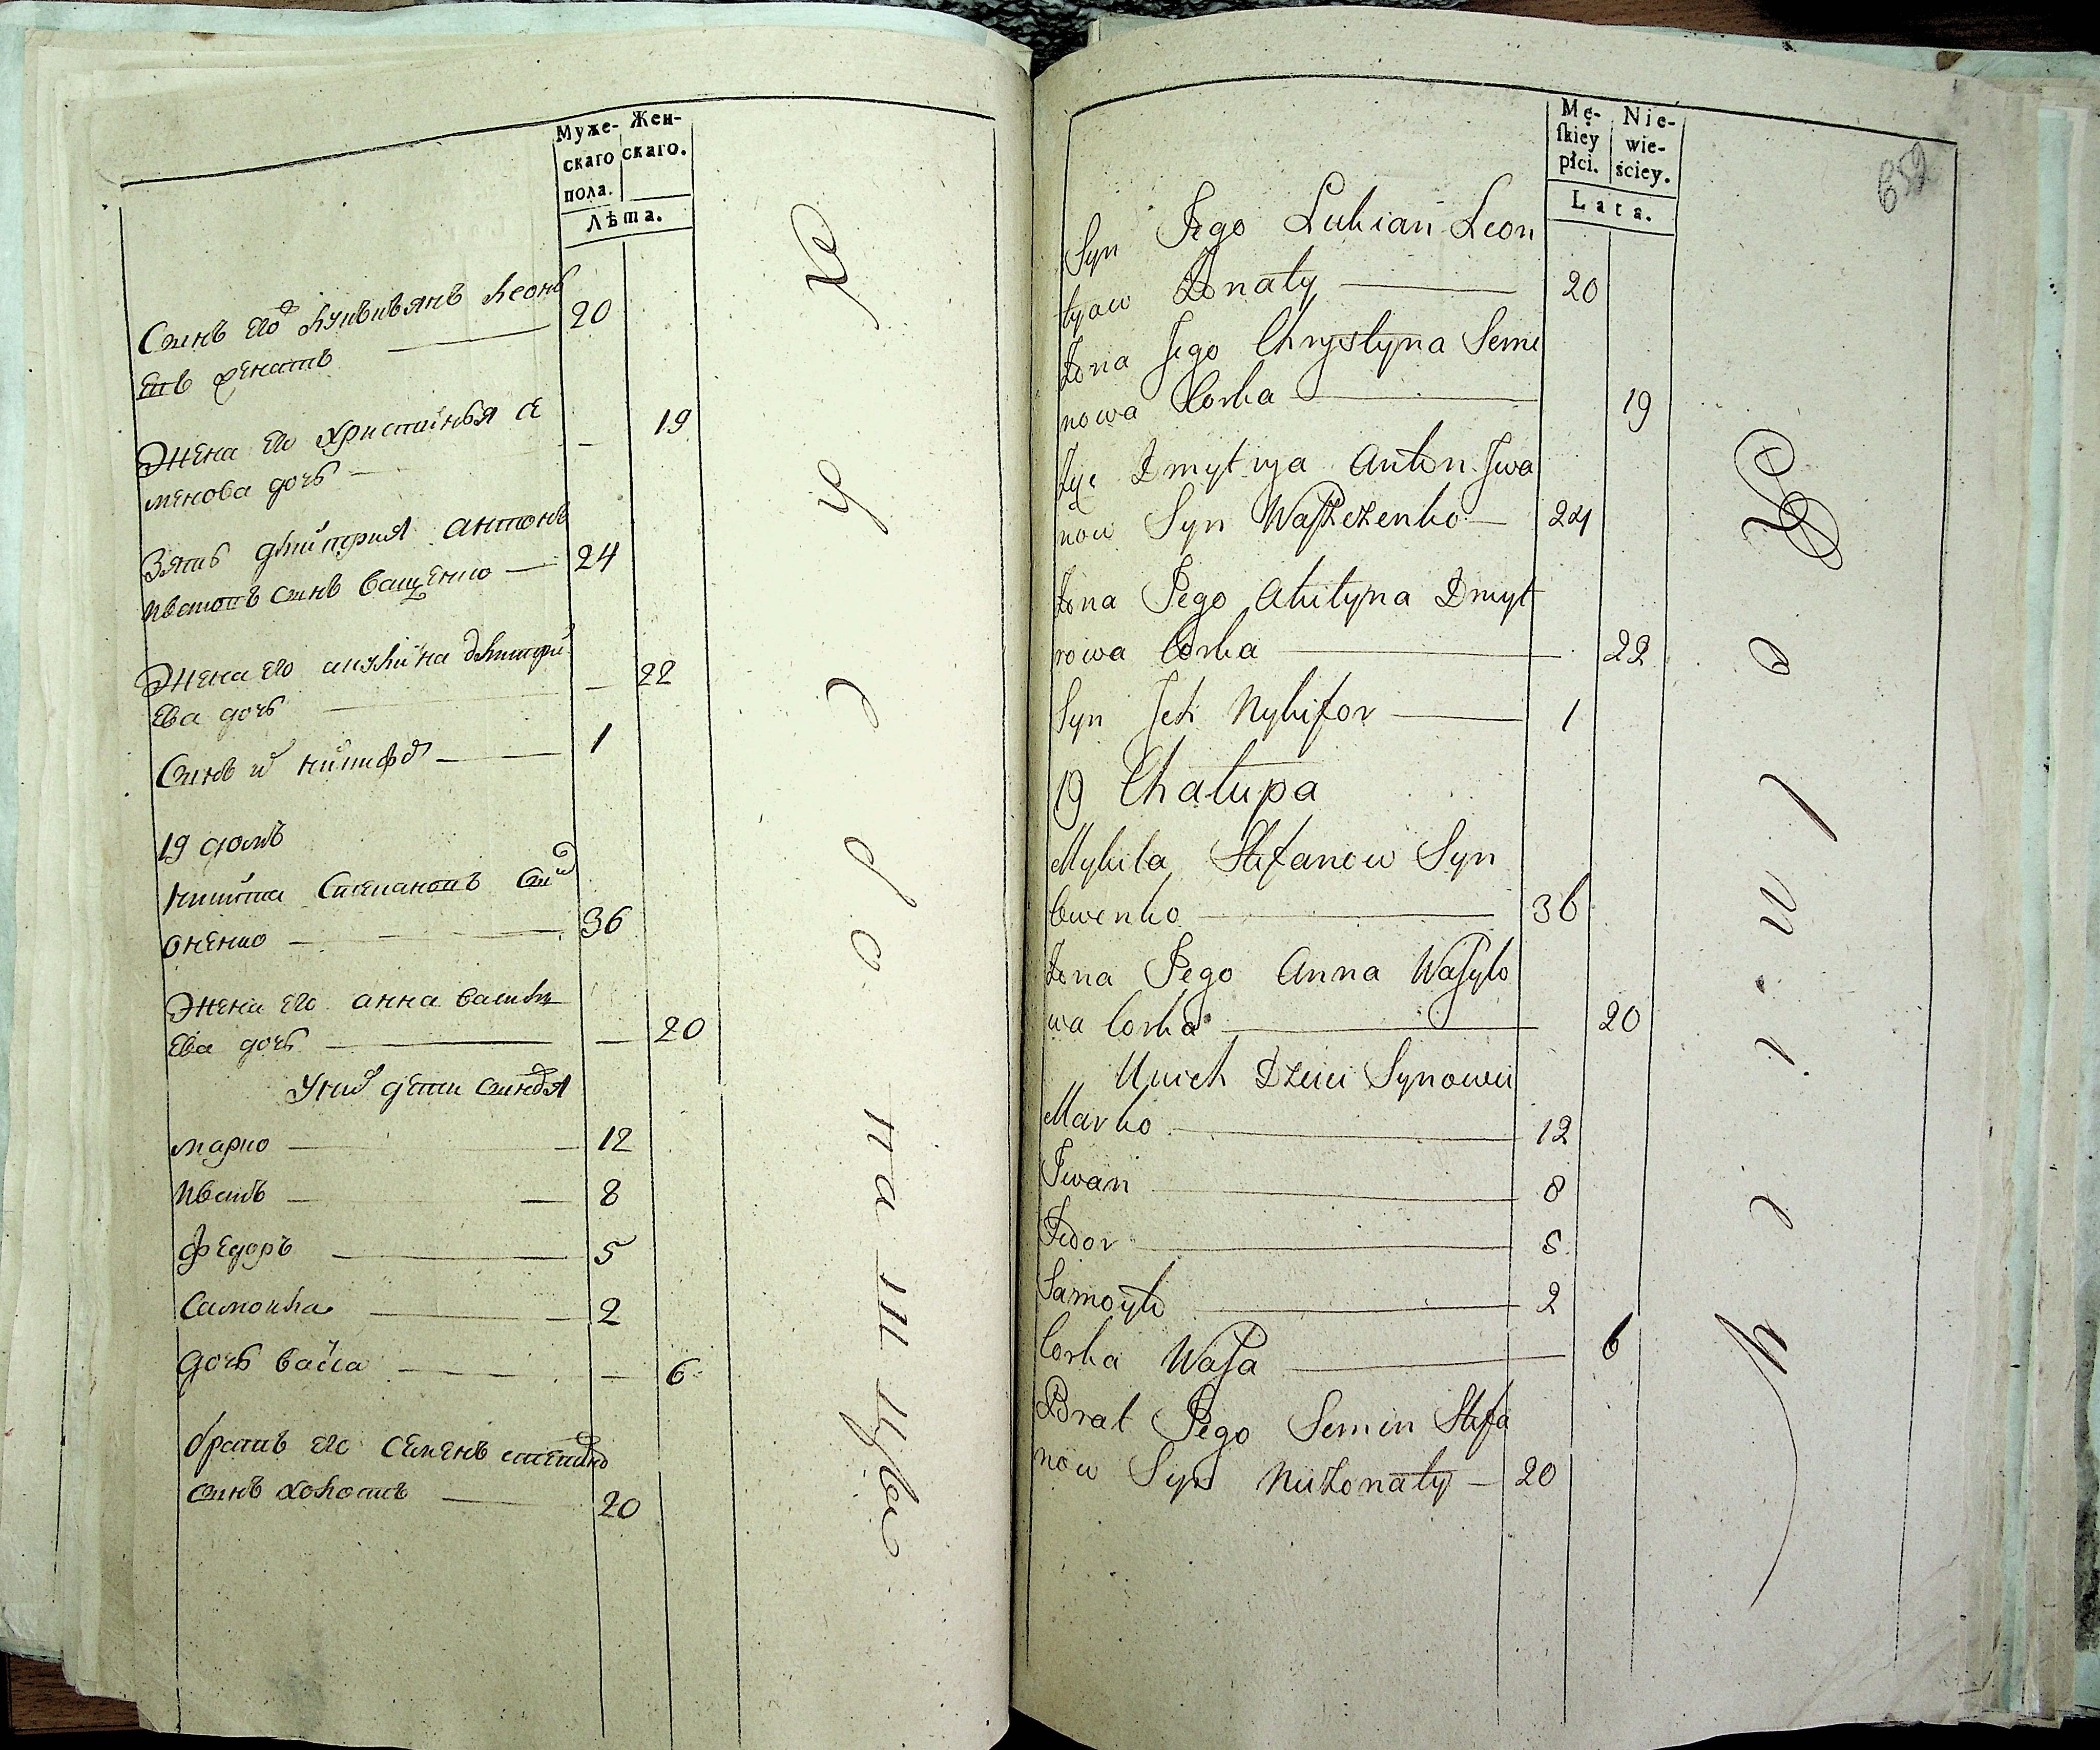 Муже- Жен-
скаго скаго.
пола.
Лѣта.
Синъ его Лукьянъ Леонъ
евъ женатъ 20
Жена его христинья се
менова дочь 19
Зять дмитрия антонъ
Ивановъ синъ Ващенко 24
Жена его акулина дмитри
ева дочь 22
Синъ их никифор 1
19 домъ
никита Степановъ син
овенко 36
Жена его анна василь
ева дочь 20
У них дети синовя
марко 12
Иванъ 8
федоръ 5
Самоила 2
дочь васса 6
братъ его семенъ степанов
синъ холостъ 20
Mę- Nie-
skiey wie-
płci. ściey.
Lata.
652
Syn Jego Lukian Leon
tyow Zonaty 20
Zona Jego Chrystyna Seme
nowa Corka 19
Zęc Dmytrya Anton Jwa
now Syn Waszczenko 24
Zona Jego Akulyna Dmyt
rowa Corka 22
Syn Jch Nykifor 1
19 Chałupa
Mykita Stefanow Syn
Owenko 36
Zona Jego Anna Wasylo
wa Corka 20
U nich Dzieci Synowie
Marko 12
Jwan 8
Fedor 5
Samoyło 2
Corka Wassa 6
Brat Jego Semen Stefa
now Syn Nieżonaty 20